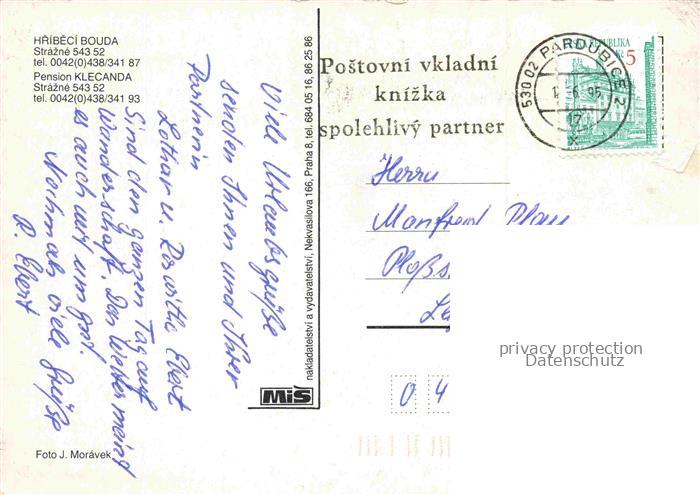 HŘÍBĚCÍ BOUDA
Strážné 543 52
tel. 0042(0)438/341 87
Pension KLECANDA
Strážné 543 52
tel. 0042(0)438/341 93
Viele Urlaubsgrüße
senden Ihnen und Ihrer
Partnerin
Lothar u. Roswitha Ebert
Sind den ganzen Tag auf
Wanderschaft. Das Wetter meint
es auch mit uns gut.
Nochmals viele Grüße
R. Ebert
Foto J. Morávek
MIŠ
nakladatelství a vydavatelství, Nekvasilova 166, Praha 8, tel. 684 05 16, 86 25 86
Poštovní vkladní
knížka
spolehlivý partner
530 02 PARDUBICE 2
6. 95
17
REPUBLIKA
5
Herrn
Manfred
04
privacy protection
Datenschutz